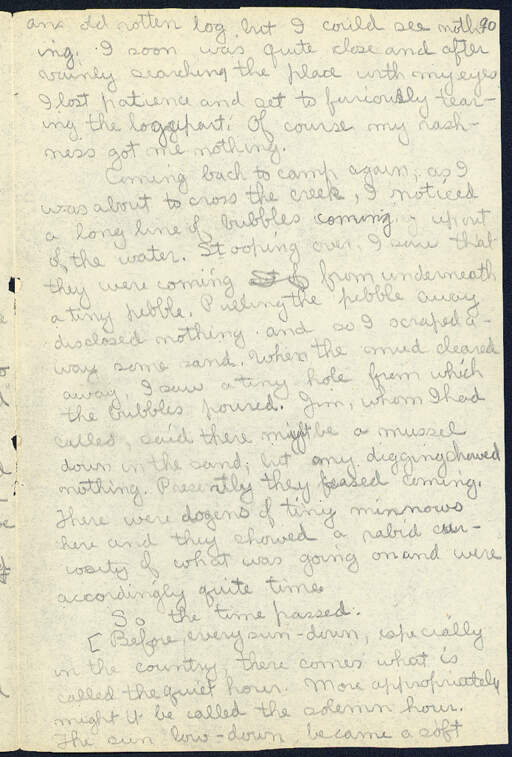 90
and old rotten log but I could see noth-
ing. I soon was quite close and after
vainly searching the place with my eyes
I lost patience and set to furiously tear-
ing the log apart. Of course my rash-
ness got me nothing.
Coming back to camp again, as I
was about to cross the creek, I noticed
a long line of bubbles coming up out
of the water. Stooping over, I saw that
they were coming from underneath
a tiny pebble. Pulling the pebble away
disclosed nothing and so I scraped a-
way some sand. When the mud cleared
away, I saw a tiny hole from which
the bubbles poured. Jim, whom I had
called, said there might be a mussel
down in the sand; but my digging showed
nothing. Presently they ceased coming.
There were dozens of tiny minnows
here and they showed a rabid cur-
iosity of what was going on and were
accordingly quite time.
So the time passed.
[ Before every sun-down, especially
in the country, there comes what is
called the quiet hour. More appropriately
might it be called the solemn hour.
The sun low-down became a soft